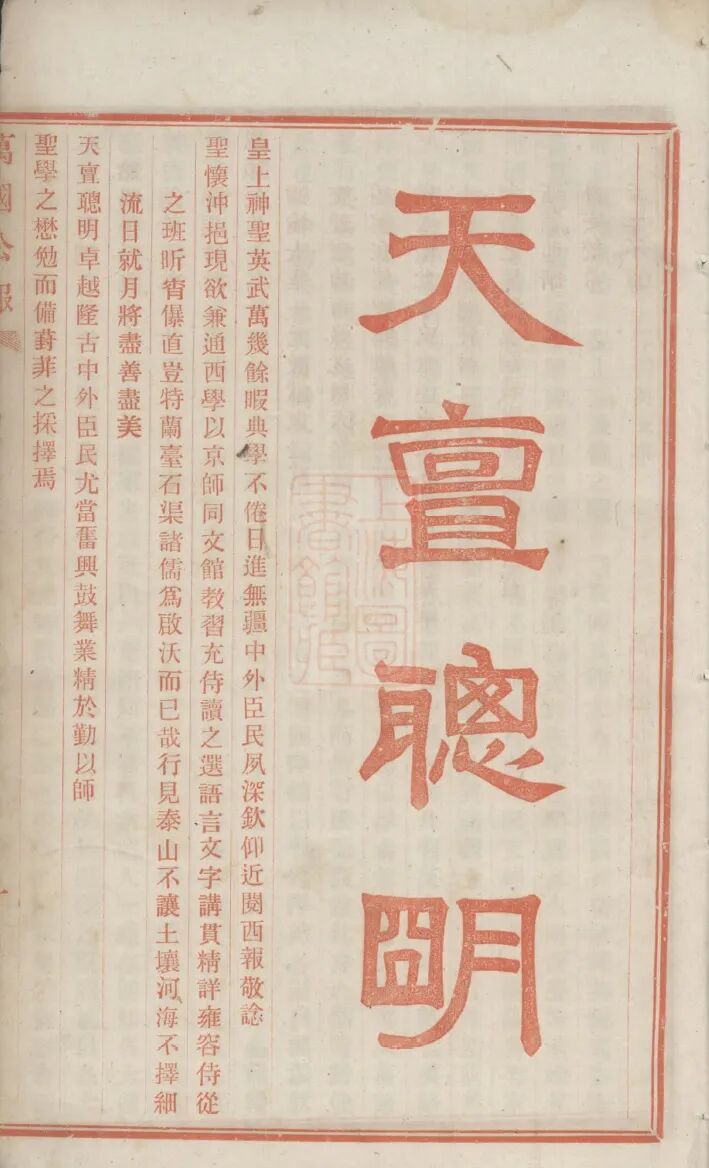 天亶聰明
皇上神聖英武萬幾餘暇典學不倦日進無疆中外臣民夙深欽仰近閱西報敬諗
聖懷沖挹現欲兼通西學以京師同文館教習充侍讀之選語言文字講貫精詳雍容侍從
之班昕宵儤直豈特蘭臺石渠諸儒爲啟沃而已哉行見泰山不讓土壤河海不擇細
流日就月將盡善盡美
天亶聰明卓越隆古中外臣民尤當奮興鼓舞業精於勤以師
聖學之懋勉而備葑菲之採擇焉
萬國公報
一
上海圖
書館藏